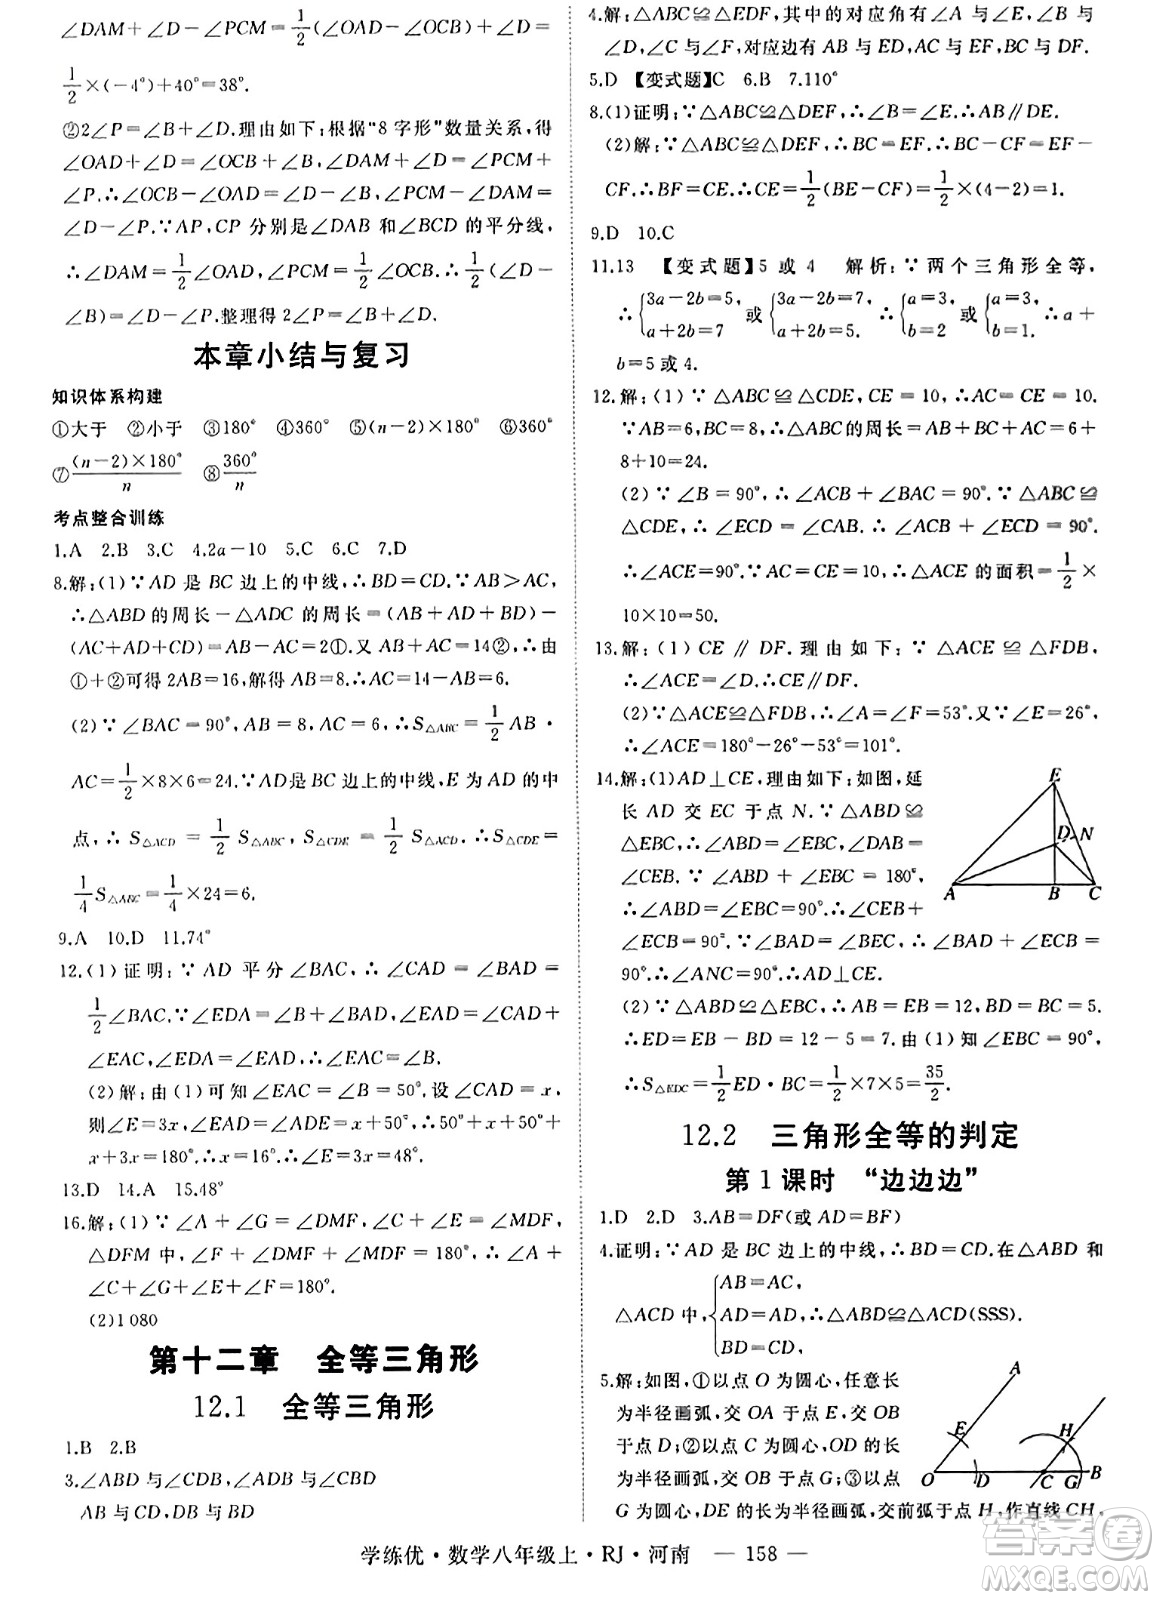 ∠DAM+∠D-∠PCM=1/2(∠OAD-∠OCB)+∠D=
1/2×(-4°)+40°=38°.
②2∠P=∠B+∠D.理由如下:根据“8字形”数量关系,得
∠OAD+∠D=∠OCB+∠B,∠DAM+∠D=∠PCM+
∠P.∴∠OCB-∠OAD=∠D-∠B,∠PCM-∠DAM=
∠D-∠P.∵AP,CP分别是∠DAM和∠BCD的平分线,
∴∠DAM=1/2∠OAD,∠PCM=1/2∠OCB.∴1/2(∠D-
∠B)=∠D-∠P.整理得2∠P=∠B+∠D.
本章小结与复习
知识体系构建
①大于 ②小于 ③180° ④360° ⑤(n-2)×180° ⑥360°
⑦(n-2)×180°/n ⑧360°/n
考点整合训练
1.A 2.B 3.C 4.2a-10 5.C 6.C 7.D
8.解:(1)∵AD是BC边上的中线,∴BD=CD.∵AB>AC,
∴△ABD的周长-△ADC的周长=(AB+AD+BD)-
(AC+AD+CD)=AB-AC=2①.又AB+AC=14②,∴
①+②可得2AB=16,解得AB=8.∴AC=14-AB=6.
(2)∵∠BAC=90°,AB=8,AC=6,∴S△ABC=1/2AB·
AC=1/2×8×6=24.∵AD是BC边上的中线,E为AD的中
点,∴S△ACD=1/2S△ABC,S△CDE=1/2S△ACD.∴S△CDE=
1/4S△ABC=1/4×24=6.
9.A 10.D 11.74°
12.(1)证明:∵AD平分∠BAC,∴∠CAD=∠BAD=
1/2∠BAC.∵∠EDA=∠B+∠BAD,∠EAD=∠CAD+
∠EAC,∠EDA=∠EAD,∴∠EAC=∠B.
(2)解:由(1)可知∠EAC=∠B=50°.设∠CAD=x,
则∠E=3x,∠EAD=∠ADE=x+50°,∴50°+x+50°
+x+3x=180°.∴x=16°.∴∠E=3x=48°.
13.D 14.A 15.48°
16.解:(1)∵∠A+∠G=∠DMF,∠C+∠E=∠MDF,
△DFM中,∠F+∠DMF+∠MDF=180°,∴∠A+
∠C+∠G+∠E+∠F=180°.
(2)1080
第十二章 全等三角形
12.1 全等三角形
1.B 2.B
3.∠ABD与∠CDB,∠ADB与∠CBD
AB与CD,DB与BD
4.解:△ABC≌△EDF,其中的对应角有∠A与∠E,∠B与
∠D,∠C与∠F,对应边有AB与ED,AC与EF,BC与DF.
5.D 【变式题】C 6.B 7.110°
8.(1)证明:∵△ABC≌△DEF,∴∠B=∠DEF,∴AB∥DE.
(2)解:∵△ABC≌△DEF,∴BC=EF.∴BC-CF=EF-
CF.∴BF=CE.∴CE=1/2(BE-CF)=1/2×(4-2)=1.
9.D 10.C
11.13 【变式题】5或4 解析:∵两个三角形全等,
∴{3a-2b=5, a+2b=7 或{3a-2b=7, a+2b=5. ∴{a=3, b=2 或{a=3, b=1. ∴a+
b=5或4.
12.解:(1)∵△ABC≌△CDE,CE=10,∴AC=CE=10.
∵AB=6,BC=8,∴△ABC的周长=AB+BC+AC=6+
8+10=24.
(2)∵∠B=90°,∴∠ACB+∠BAC=90°.∵△ABC≌
△CDE,∴∠BAC=∠DCE.∴∠ACB+∠DCE=90°.
∴∠ACE=90°.∵AC=CE=10,∴△ACE的面积=1/2×
10×10=50.
13.解:(1)CE∥DF.理由如下:∵△ACE≌△FDB,
∴∠ACE=∠D.∴CE∥DF.
(2)∵△ACE≌△FDB,∴∠A=∠F=53°.又∵∠E=26°,
∴∠ACE=180°-26°-53°=101°.
14.解:(1)AD⊥CE,理由如下:如图,延
长AD交EC于点N.∵△ABD≌
△EBC,∴∠ABD=∠EBC,∠DAB=
∠CEB.∵∠ABD+∠EBC=180°,
∴∠ABD=∠EBC=90°.∴∠CEB+
∠ECB=90°.∴∠BAD=∠BEC,∴∠BAD+∠ECB=
90°.∴∠ANC=90°.∴AD⊥CE.
(2)∵△ABD≌△EBC,∴AB=EB=12,BD=BC=5.
∴ED=EB-BD=12-5=7.由(1)知∠EBC=90°,
∴S△EDC=1/2ED·BC=1/2×7×5=35/2.
E
D
N
A
B
C
12.2 三角形全等的判定
第1课时 “边边边”
1.D 2.D 3.AB=DF(或AD=BF)
4.证明:∵AD是BC边上的中线,∴BD=CD.在△ABD和
△ACD中,{AB=AC, AD=AD, BD=CD. ∴△ABD≌△ACD(SSS)
5.解:如图,①以点O为圆心,任意长
为半径画弧,交OA于点E,交OB
于点D;②以点C为圆心,OD的长
为半径画弧,交OB于点G;③以点
G为圆心,DE的长为半径画弧,交前弧于点H,作直线CH,
A
E
H
O
D
C
G
B
学练优·数学八年级上·RJ·河南 — 158 —
答案圈
MXQE.COM